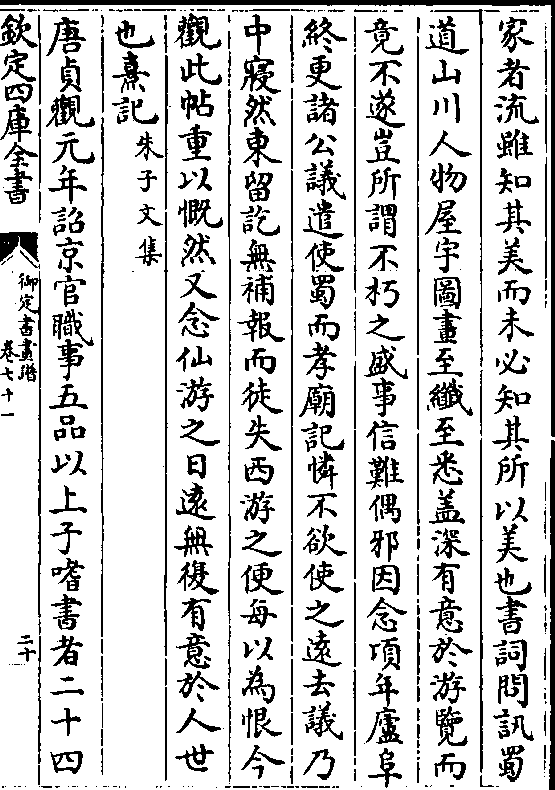 家者流雖知其美而未必知其所以美也書詞問訊蜀
道山川人物屋宇圖畫至纖至悉盖深有意於游覽而
竟不遂豈所謂不朽之盛事信難偶邪因念項年廬阜
終更諸公議遣使蜀而孝廟記憐不欲使之遠去議乃
中寢然東留訖無補報而徒失西游之便每以為恨今
觀此帖重以慨然又念仙游之日遠無復有意於人世
也熹記朱子文集
唐貞觀元年詔京官職事五品以上子嗜書者二十四
欽定四庫全書
御定書畫譜
卷七十一
二十